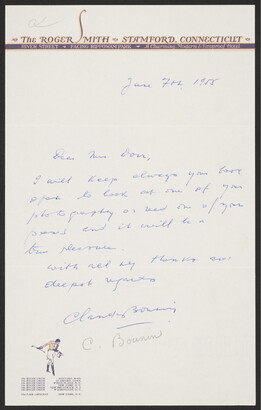 The ROGER SMITH • STAMFORD, CONNECTICUT
RIVER STREET • FACING RIPPOWAM PARK • A Charming, Modern & Fireproof Hotel
June 7th, 1955
Dear Mrs Dorr,
I will keep always your book
open to look at one of your
photography or read one of your
poems and it will be a
true pleasure.
With all my thanks and
deepest regards
Claude
C.